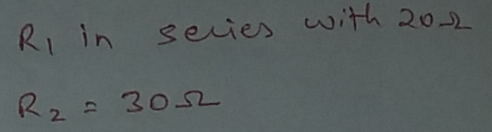 R₁ in series with 20Ω
R₂ = 30Ω